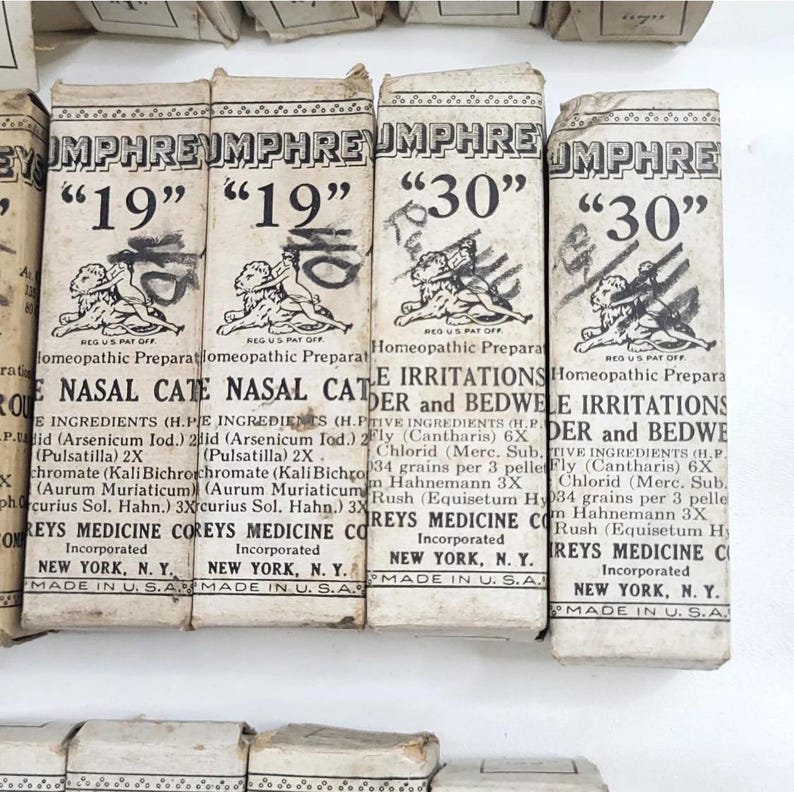 EYS
UMPHREY
"19"
REG U S PAT OFF.
Homeopathic Preparat
E NASAL CAT
E INGREDIENTS (H.P.
did (Arsenicum Iod.) 2
(Pulsatilla) 2X
chromate (Kali Bichro
(Aurum Muriaticum)
rcurius Sol. Hahn.) 3X
REYS MEDICINE CO
Incorporated
NEW YORK, N. Y.
MADE IN U. S. A.
UMPHREY
"19"
REG U S PAT OFF.
Homeopathic Preparat
E NASAL CAT
E INGREDIENTS (H.P.
did (Arsenicum Iod.) 2
(Pulsatilla) 2X
chromate (Kali Bichro
(Aurum Muriaticum)
rcurius Sol. Hahn.) 3X
REYS MEDICINE CO
Incorporated
NEW YORK, N. Y.
MADE IN U. S. A.
UMPHREY
"30"
REG U S PAT OFF.
Homeopathic Preparat
LE IRRITATIONS
DER and BEDWE
TIVE INGREDIENTS (H.P.
Fly (Cantharis) 6X
Chlorid (Merc. Sub.
034 grains per 3 pellet
m Hahnemann 3X
Rush (Equisetum Hy
REYS MEDICINE CO
Incorporated
NEW YORK, N. Y.
MADE IN U. S. A.
UMPHREY
"30"
REG U S PAT OFF.
Homeopathic Prepara
LE IRRITATIONS
DER and BEDWE
TIVE INGREDIENTS (H.P.
Fly (Cantharis) 6X
Chlorid (Merc. Sub.
034 grains per 3 pelle
m Hahnemann 3X
Rush (Equisetum Hy
REYS MEDICINE CO
Incorporated
NEW YORK, N. Y.
MADE IN U. S. A.